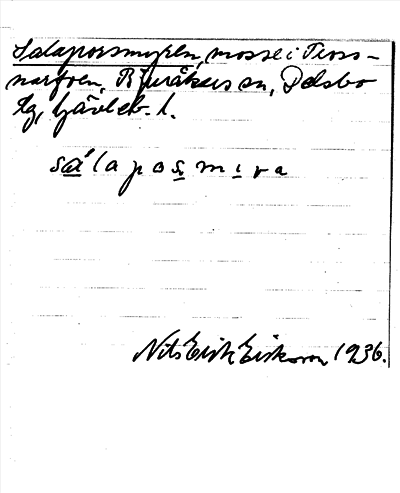 Salaporsmyren, mosse i Tross-
narfven, Bjuråkers sn, Delsbo
tg, Gävleb. l.
sálaposmıra
Nils Erik Eriksson 1936.